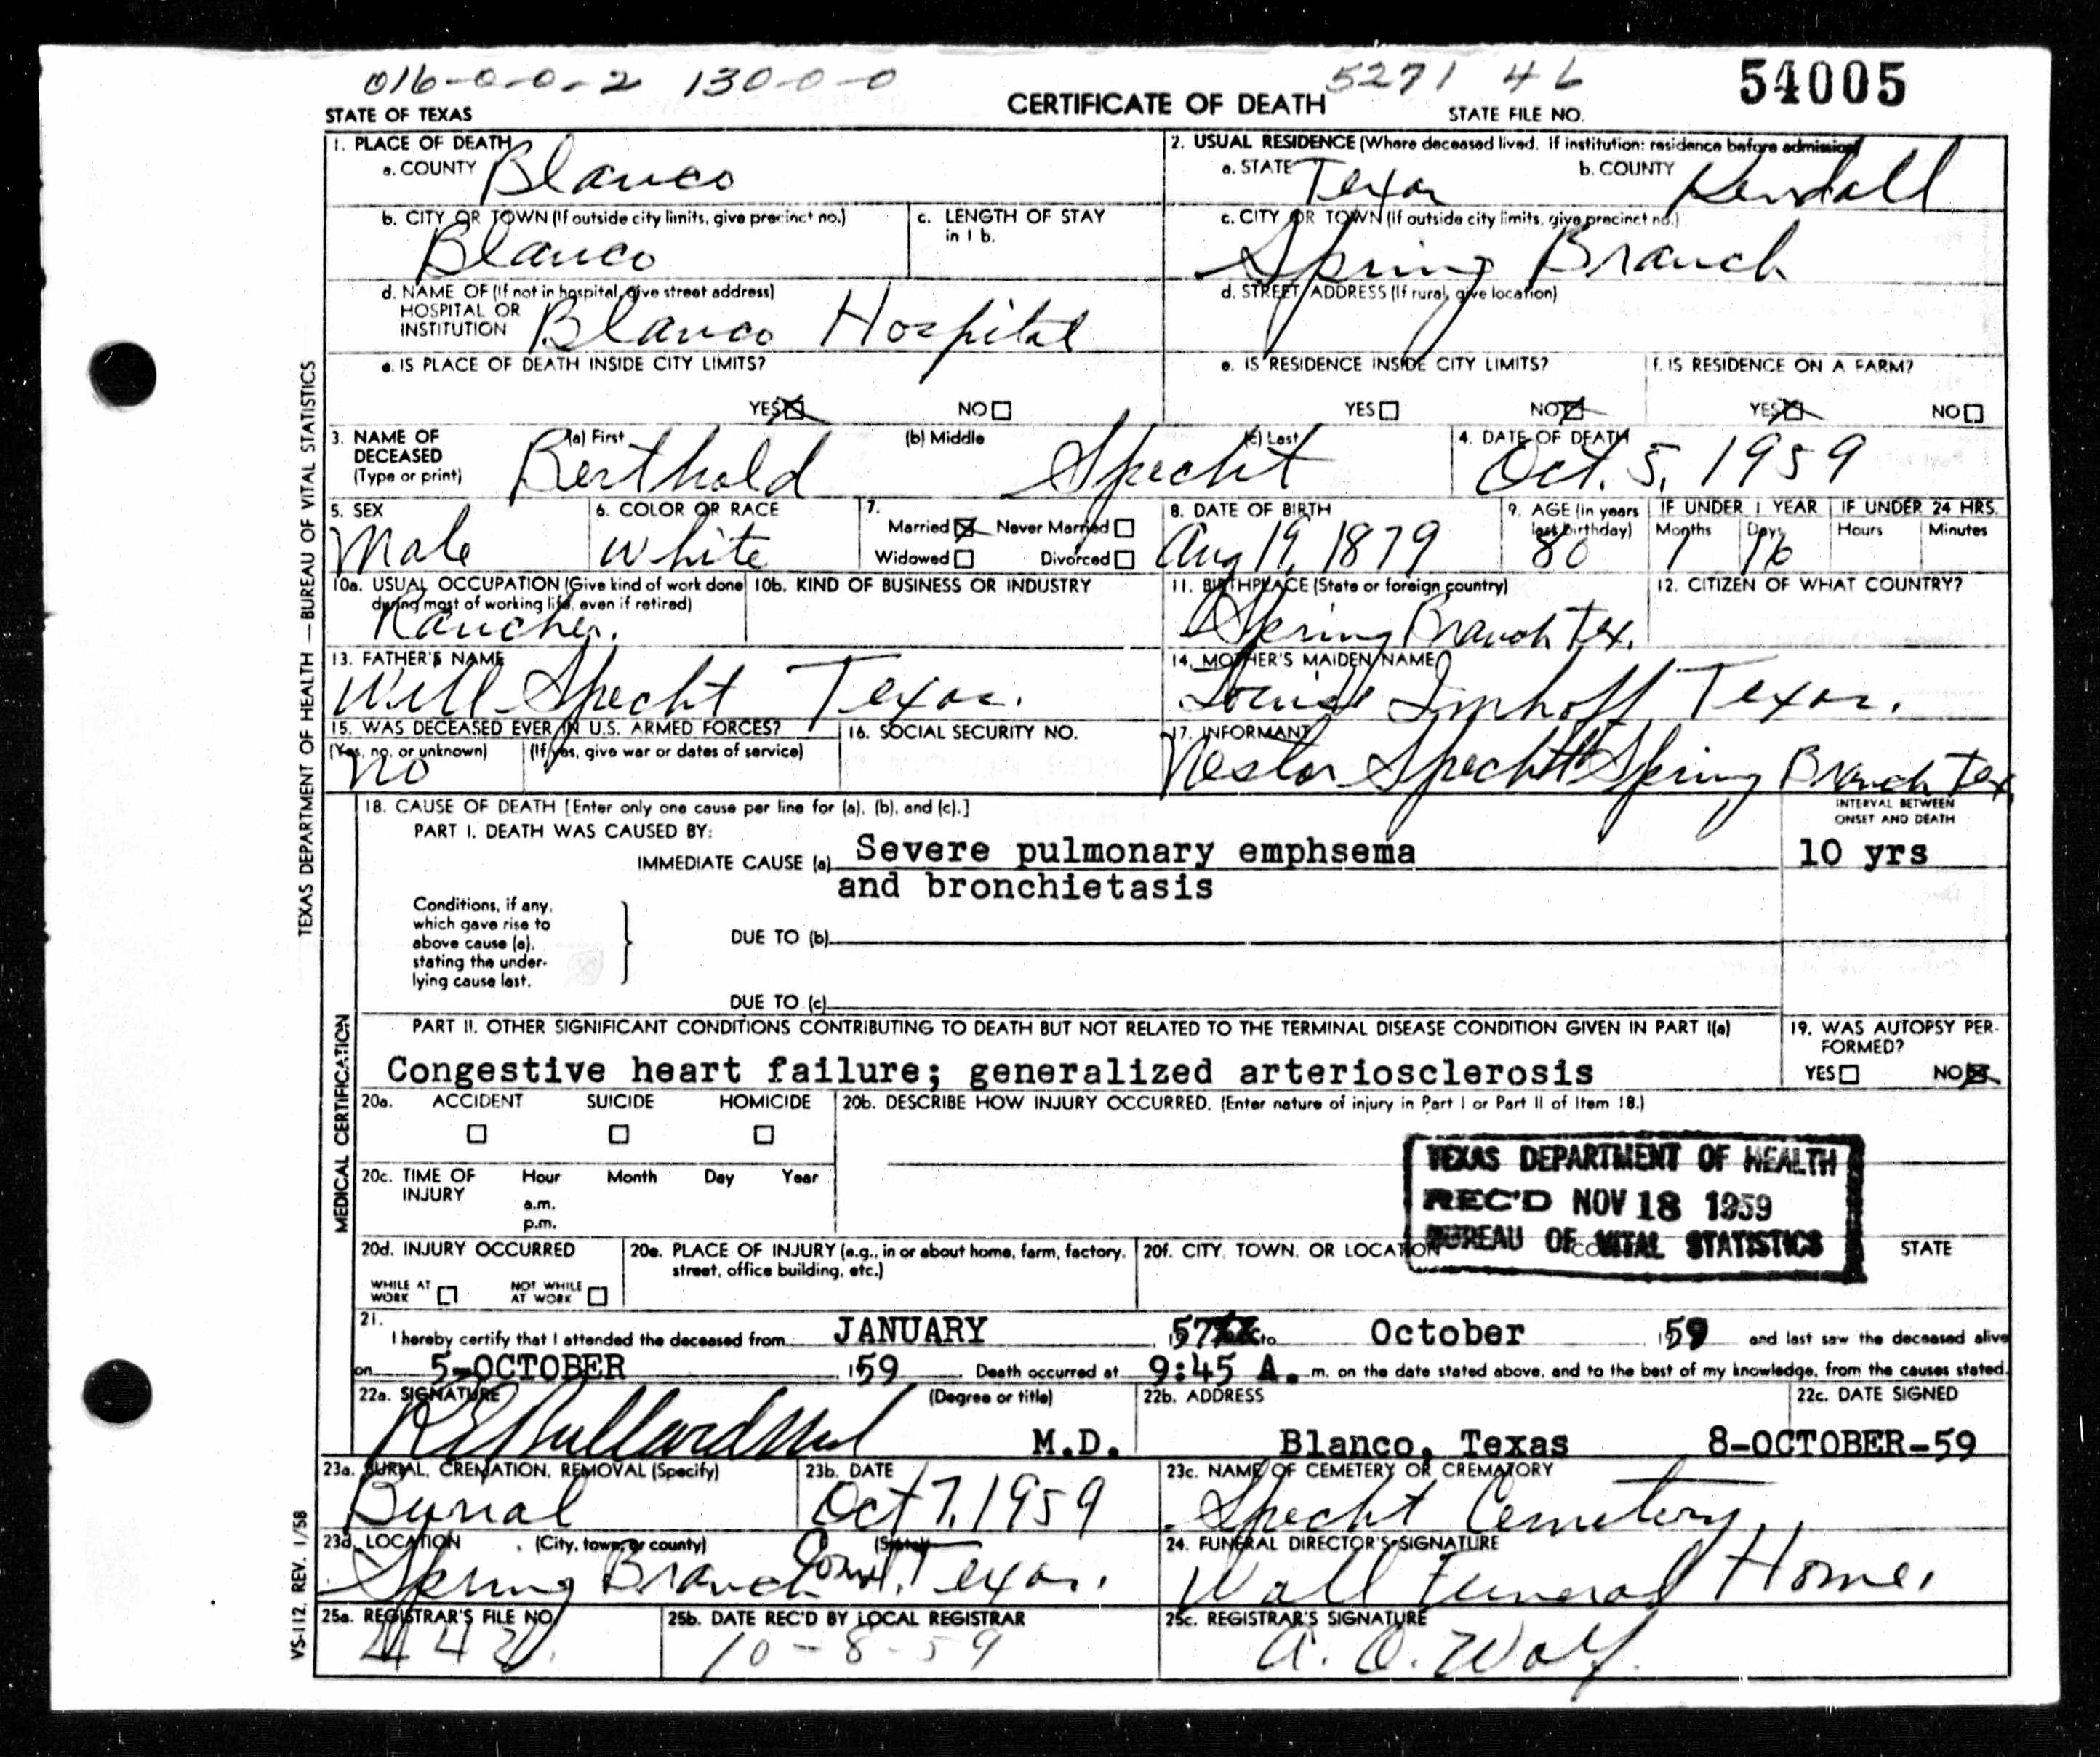 016-0-0-2 130-0-0
5271 46
54005
STATE OF TEXAS
CERTIFICATE OF DEATH
STATE FILE NO.
1. PLACE OF DEATH
a. COUNTY Blanco
2. USUAL RESIDENCE (Where deceased lived. If institution: residence before admission)
a. STATE Texas
b. COUNTY Kendall
b. CITY OR TOWN (If outside city limits, give precinct no.)
Blanco
c. LENGTH OF STAY in 1 b.
c. CITY OR TOWN (If outside city limits, give precinct no.)
Spring Branch
d. NAME OF (If not in hospital, give street address)
HOSPITAL OR
INSTITUTION Blanco Hospital
d. STREET ADDRESS (If rural, give location)
e. IS PLACE OF DEATH INSIDE CITY LIMITS?
YES NO
e. IS RESIDENCE INSIDE CITY LIMITS?
YES NO
f. IS RESIDENCE ON A FARM?
YES NO
3. NAME OF DECEASED (Type or print)
(a) First (b) Middle (c) Last
Berthold Specht
4. DATE OF DEATH
Oct. 5, 1959
5. SEX
Male
6. COLOR OR RACE
White
7.
Married Never Married
Widowed Divorced
8. DATE OF BIRTH
Aug 19, 1879
9. AGE (in years last birthday)
80
IF UNDER 1 YEAR
Months Days
1 16
IF UNDER 24 HRS.
Hours Minutes
10a. USUAL OCCUPATION (Give kind of work done during most of working life, even if retired)
Rancher.
10b. KIND OF BUSINESS OR INDUSTRY
11. BIRTHPLACE (State or foreign country)
Spring Branch Tex.
12. CITIZEN OF WHAT COUNTRY?
13. FATHER'S NAME
Will Specht Texas.
14. MOTHER'S MAIDEN NAME
Louise Imhoff Texas.
15. WAS DECEASED EVER IN U.S. ARMED FORCES?
(Yes, no, or unknown) (If yes, give war or dates of service)
No
16. SOCIAL SECURITY NO.
17. INFORMANT
Nestor Specht Spring Branch Tex.
18. CAUSE OF DEATH [Enter only one cause per line for (a), (b), and (c).]
INTERVAL BETWEEN ONSET AND DEATH
PART I. DEATH WAS CAUSED BY:
IMMEDIATE CAUSE (a) Severe pulmonary emphsema
10 yrs
and bronchietasis
Conditions, if any, which gave rise to above cause (a), stating the underlying cause last.
DUE TO (b)
DUE TO (c)
PART II. OTHER SIGNIFICANT CONDITIONS CONTRIBUTING TO DEATH BUT NOT RELATED TO THE TERMINAL DISEASE CONDITION GIVEN IN PART I(a)
Congestive heart failure; generalized arteriosclerosis
19. WAS AUTOPSY PERFORMED?
YES NO
20a. ACCIDENT SUICIDE HOMICIDE
20b. DESCRIBE HOW INJURY OCCURRED. (Enter nature of injury in Part I or Part II of Item 18.)
20c. TIME OF INJURY
Hour Month Day Year
a.m.
p.m.
TEXAS DEPARTMENT OF HEALTH
REC'D NOV 18 1959
BUREAU OF VITAL STATISTICS
20d. INJURY OCCURRED
WHILE AT WORK
NOT WHILE AT WORK
20e. PLACE OF INJURY (e.g., in or about home, farm, factory, street, office building, etc.)
20f. CITY, TOWN, OR LOCATION
STATE
21.
I hereby certify that I attended the deceased from JANUARY 1957 to October 1959 and last saw the deceased alive
on 5-OCTOBER 1959 . Death occurred at 9:45 A. m. on the date stated above, and to the best of my knowledge, from the causes stated.
22a. SIGNATURE
(Degree or title)
M.D.
22b. ADDRESS
Blanco, Texas
22c. DATE SIGNED
8-OCTOBER-59
23a. BURIAL, CREMATION, REMOVAL (Specify)
Burial
23b. DATE
Oct 7, 1959
23c. NAME OF CEMETERY OR CREMATORY
Specht Cemetery
23d. LOCATION (City, town, or county) (State)
Spring Branch Texas.
24. FUNERAL DIRECTOR'S SIGNATURE
Wall Funeral Home.
25a. REGISTRAR'S FILE NO.
25b. DATE REC'D BY LOCAL REGISTRAR
10-8-59
25c. REGISTRAR'S SIGNATURE
A. O. Wolf.
TEXAS DEPARTMENT OF HEALTH — BUREAU OF VITAL STATISTICS
MEDICAL CERTIFICATION
VS-112. REV. 1/58